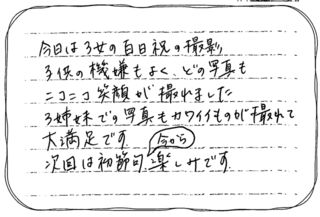 今日は3女の百日祝の撮影
子供の機嫌もよく、どの写真も
ニコニコ笑顔が撮れました
3姉妹での写真もカワイイものが撮れて
大満足です
次回は初節句 今から 楽しみです